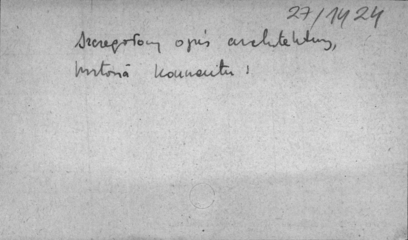 27/1424
szczegółowy opis architektury,
historia konwentu!